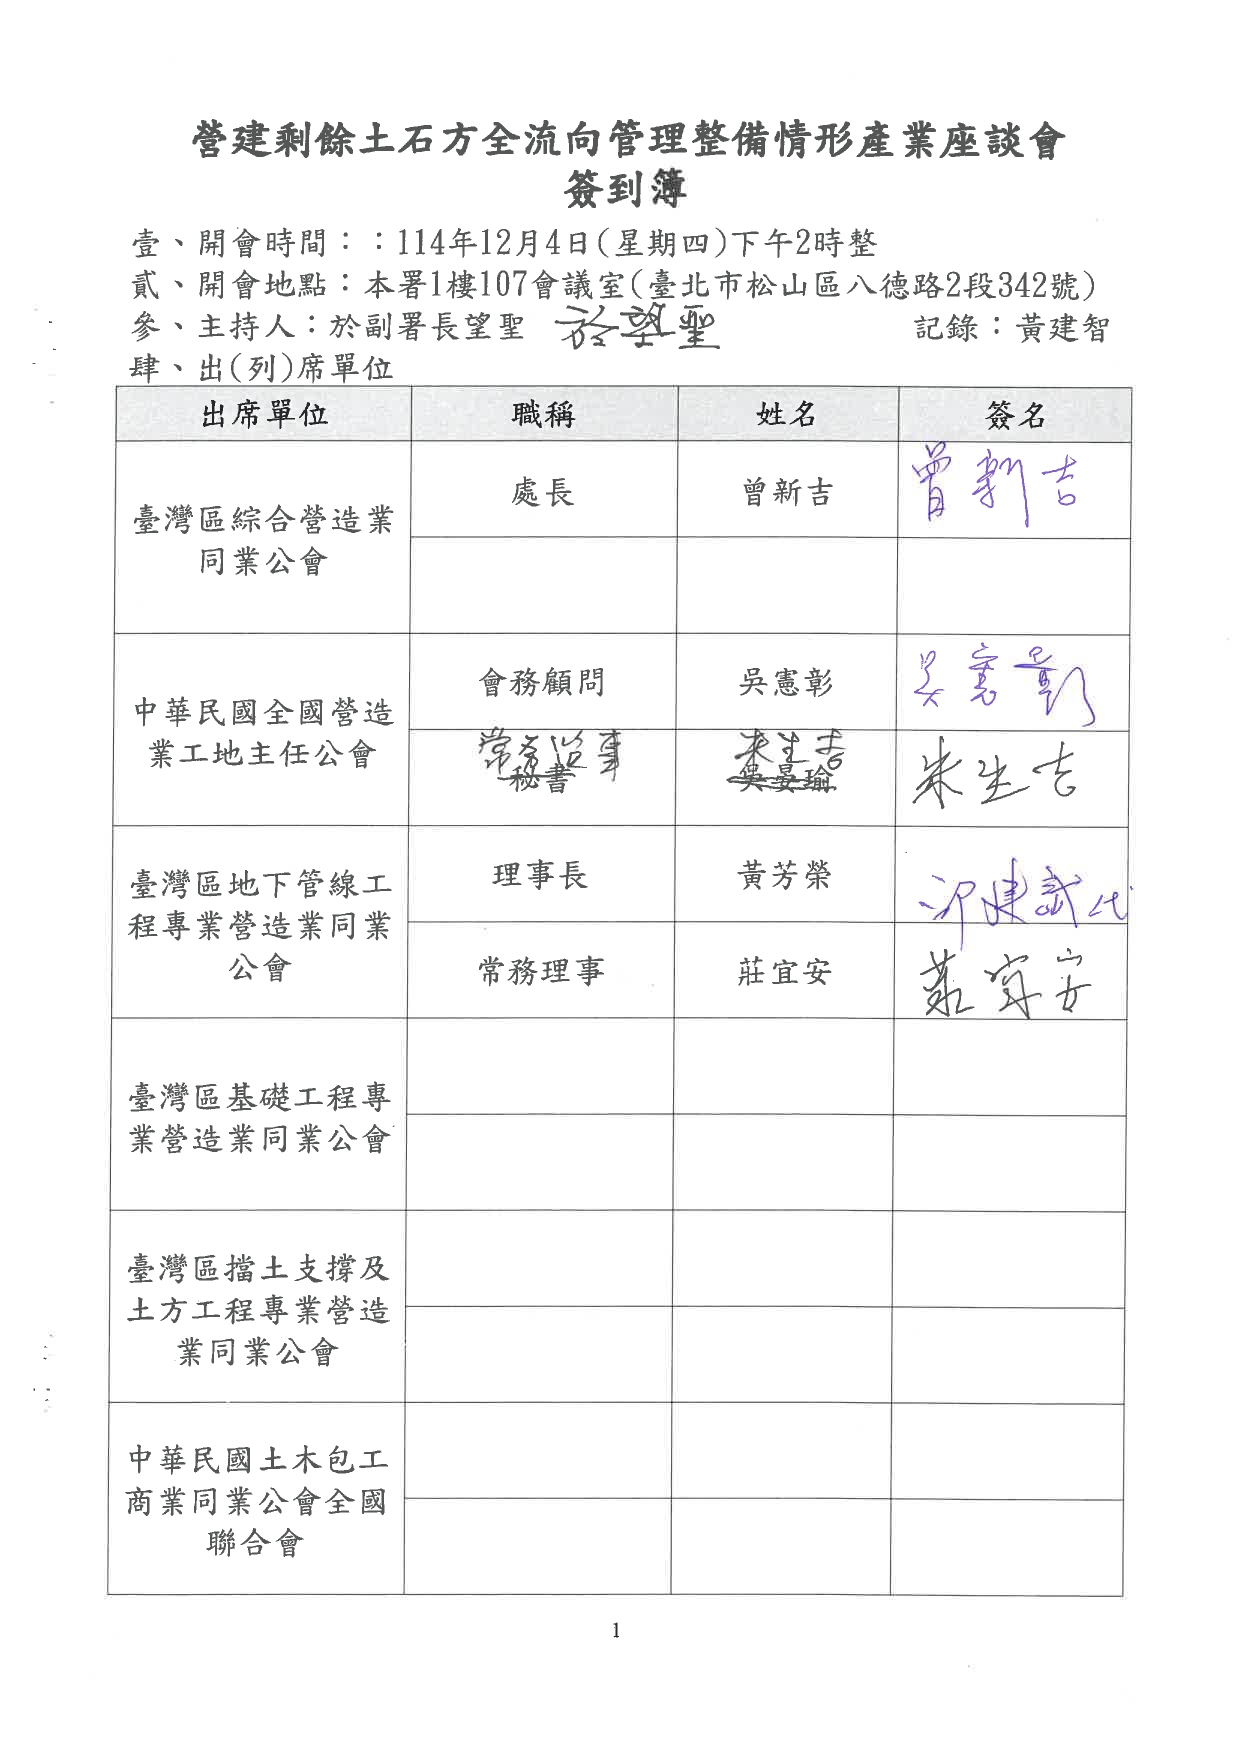 營建剩餘土石方全流向管理整備情形產業座談會
簽到簿
壹、開會時間：：114年12月4日(星期四)下午2時整
貳、開會地點：本署1樓107會議室(臺北市松山區八德路2段342號)
參、主持人：於副署長望聖 於望聖 記錄：黃建智
肆、出(列)席單位
出席單位 職稱 姓名 簽名
臺灣區綜合營造業
同業公會
處長 曾新吉 曾新吉
中華民國全國營造
業工地主任公會
會務顧問 吳憲彰 吳憲彰
常務 事 朱生吉 朱生吉
秘書 吳晏瑜
臺灣區地下管線工
程專業營造業同業
公會
理事長 黃芳榮 建 代
常務理事 莊宜安 莊宜安
臺灣區基礎工程專
業營造業同業公會
臺灣區擋土支撐及
土方工程專業營造
業同業公會
中華民國土木包工
商業同業公會全國
聯合會
1